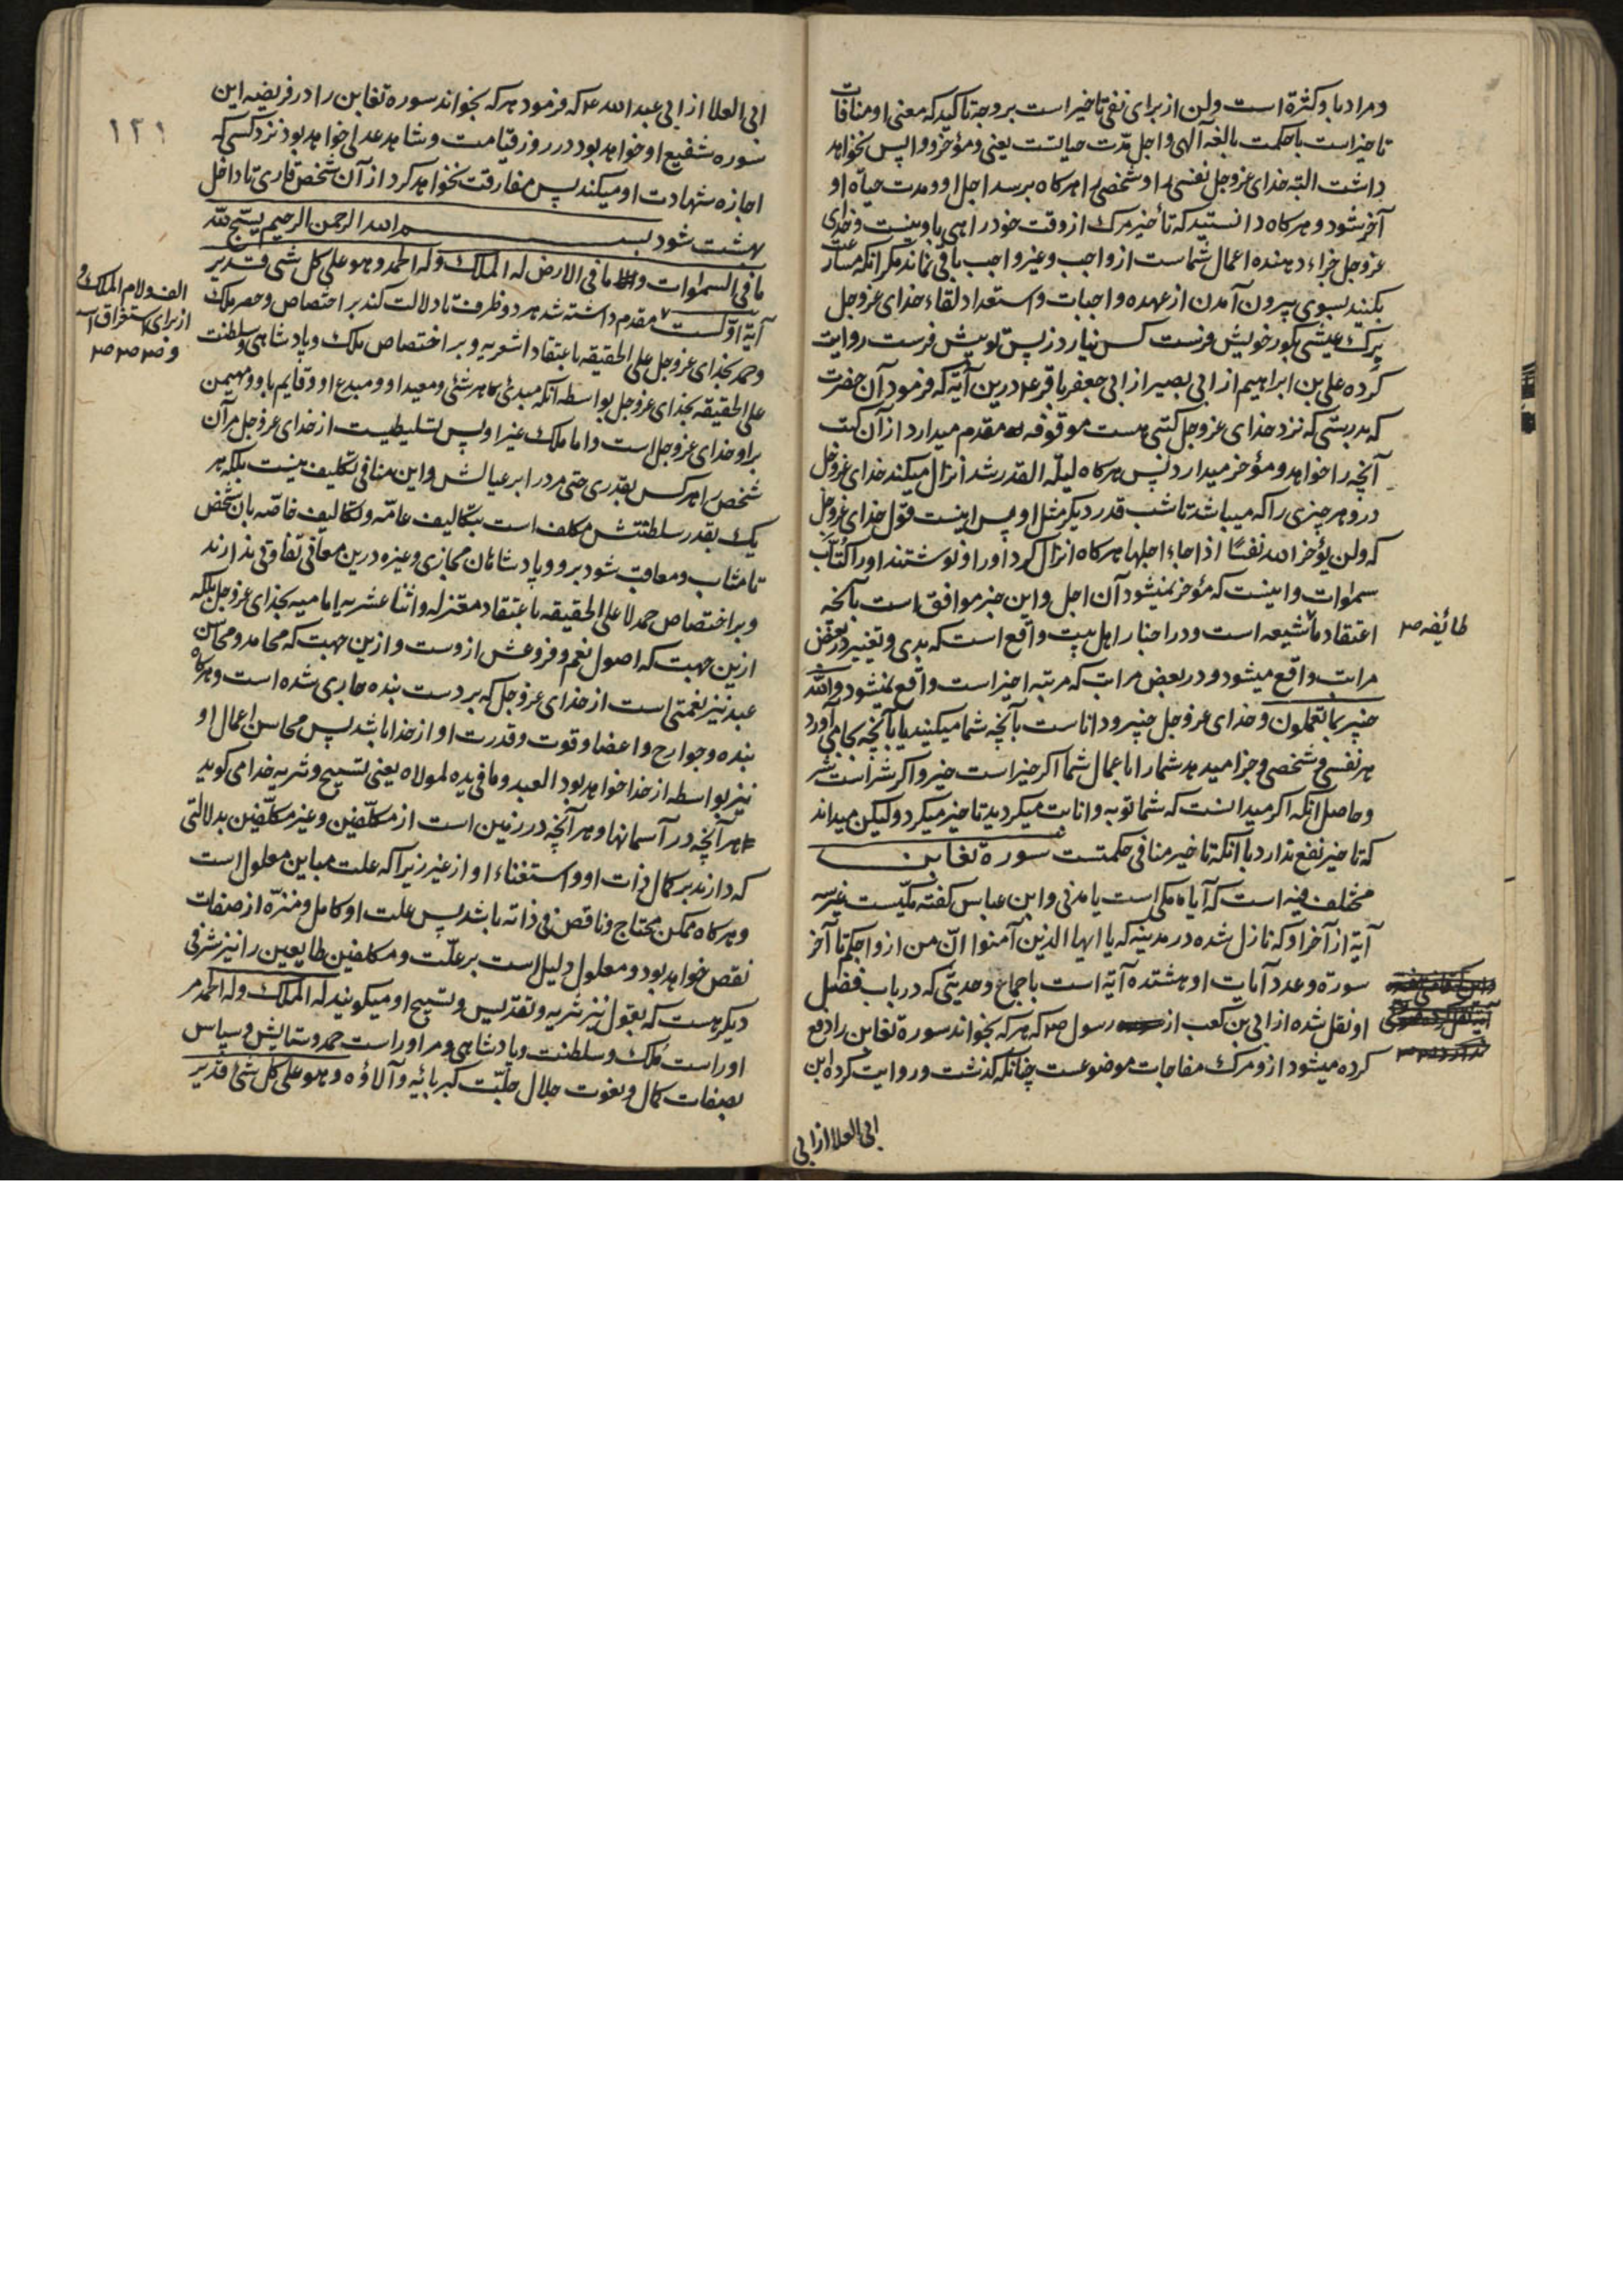 و مراد باو کثرة است ولن از برای نفی تاخیر است بر وجه تاکید که معنی او منافات
تاخیر است با حکمت بالغه آلهی و اجل مدّت حیاتست یعنی و مؤخر و واپس نخواهد
داشت البته خدای عزوجل نفسی را و شخصی را هرکاه برسد اجل او و مدت حیاة او
آخر شود و هرکاه دانستید که تأخیر مرک از وقت خود راهی باو نیست و خدای
عزوجل جزاء دهنده اعمال شماست از واجب و غیر واجب باقی نماند مکر انکه مسارعت
بکنید بسوی بیرون آمدن از عهده واجبات و استعداد لقاء خدای عزوجل
برک عیشی بکور خویش فرست کس نیارد ز پس تو پیش فرست روایت
کرده علی بن ابراهیم از ابی بصیر از ابی جعفر باقر ع درین آیة که فرمود آن حضرت
که بدرستی که نزد خدای عزوجل کتبی هست موقوفه مقدم میدارد از آن کتب
آنچه را خواهد و مؤخر میدارد پس هرکاه لیلة القدر شد انزال میکند خدای عزوجل
درو هر چیزی را که میباشد تا شب قدر دیکر مثل او پس اینست قول خدای عزوجل
که ولن یؤخر الله نفسًا اذا جاء اجلها هرکاه انزال کرد او را و نوشتند او را کُتّاب
سموات و اینست که مؤخر نمیشود آن اجل و این خبر موافق است بآنچه
اعتقاد ما شیعه است و در اخبار اهل بیت واقع است که بدی و تغییر در بعض
طائفه ص
مراتب واقع میشود و در بعض مراتب که مرتبه اخیر است واقع نمیشود والله
خبیر بما تعملون و خدای عزوجل خبیر و داناست بآنچه شما میکنید یا بآنچه بجا می آورد
هر نفسی و شخصی و جزا میدهد شما را باعمال شما اکر خیر است خیر و اکر شر است شر
و حاصل انکه اکر میدانست که شما توبه و انابت میکردید تاخیر میکرد و لیکن میداند
که تاخیر نفع ندارد با آنکه تاخیر منافی حکمتست سورة تغابن
مختلف فیه است که آیا مکی است یا مدنی و ابن عباس کفته مکیّست غیر سه
آیة از آخر او که نازل شده در مدینه که یا ایها الذین آمنوا انّ من ازواجکم تا آخر
سورة و عدد آیات او هشتده آیة است باجماع و حدیثی که در باب فضل
او نقل شده از ابی بن کعب از رسول ص که هرکه بخواند سورة تغابن را دفع
کرده میشود ازو مرک مفاجات موضوعست چنانکه کذشت و روایت کرده ابن
ابی العلا از ابی
١٢١
ابی العلا از ابی عبد الله ع که فرمود هرکه بخواند سوره تغابن را در فریضه این
سوره شفیع او خواهد بود در روز قیامت و شاهد عدلی خواهد بود نزد کسی که
اجازه شهادت او میکند پس مفارقت نخواهد کرد از آن شخص قاری تا داخل
بهشت شود بسم الله الرحمن الرحیم یسبّح لله
ما فی السموات و ما فی الارض له الملک و له الحمد و هو علی کل شی قدیر
آیة اوّلست مقدم داشته شد هر دو ظرف تا دلالت کند بر اختصاص و حصر ملک
الف و لام الملک و
از برای استغراق است
و حمد بخدای عزوجل علی الحقیقه باعتقاد اشعریه و بر اختصاص ملک و پادشاهی و سلطنت
علی الحقیقه بخدای عزوجل بواسطه انکه مبدئ هر شئ و معید او و مبدع او و قایم باو و مهیمن
براو خدای عزوجل است و اما ملک غیر او پس تسلیطیست از خدای عزوجل مر آن
شخص را هرکس بقدری حتی مرد را بر عیالش و این منافی تکلیف نیست بلکه هر
یک بقدر سلطنتش مکلف است بتکالیف عامّه و تکالیف خاصّه بان شخص
تا مثاب و معاقب شود برو و پادشاهان مجازی و غیره درین معانی تفاوتی ندارند
و بر اختصاص حمد لا علی الحقیقه باعتقاد معتزله و اثنا عشریه امامیه بخدای عزوجل بلکه
ازین جهت که اصول نعم و فروعش ازوست و ازین جهت که محامد و محاسن
عبد نیز نعمتی است از خدای عزوجل که بر دست بنده جاری شده است و هرکاه
بنده و جوارح و اعضا و قوت و قدرت او از خدا باشد پس محاسن اعمال او
نیز بواسطه از خدا خواهد بود العبد و ما فی یده لمولاه یعنی تسبیح و تنزیه خدا می کوید
هر آنچه در آسمانها و هر آنچه در زمین است از مکلّفین و غیر مکلّفین بدلالتی
که دارند بر کمال ذات او و استغناء او از غیر زیرا که علت مباین معلول است
و هرکاه ممکن محتاج و ناقص فی ذاته باشد پس علت او کامل و منزّه از صفات
نقص خواهد بود و معلول دلیل است بر علّت و مکلفین طایعین را نیز شرفی
دیکر هست که بقول نیز تنزیه و تقدیس و تسبیح او میکویند له الملک و له الحمد مر
او راست مُلک و سلطنت و پادشاهی و مر او راست حمد و ستایش و سپاس
بصفات کمال و نعوت جلال جلّت کبریائیه و آلاؤه و هو علی کل شئ قدیر